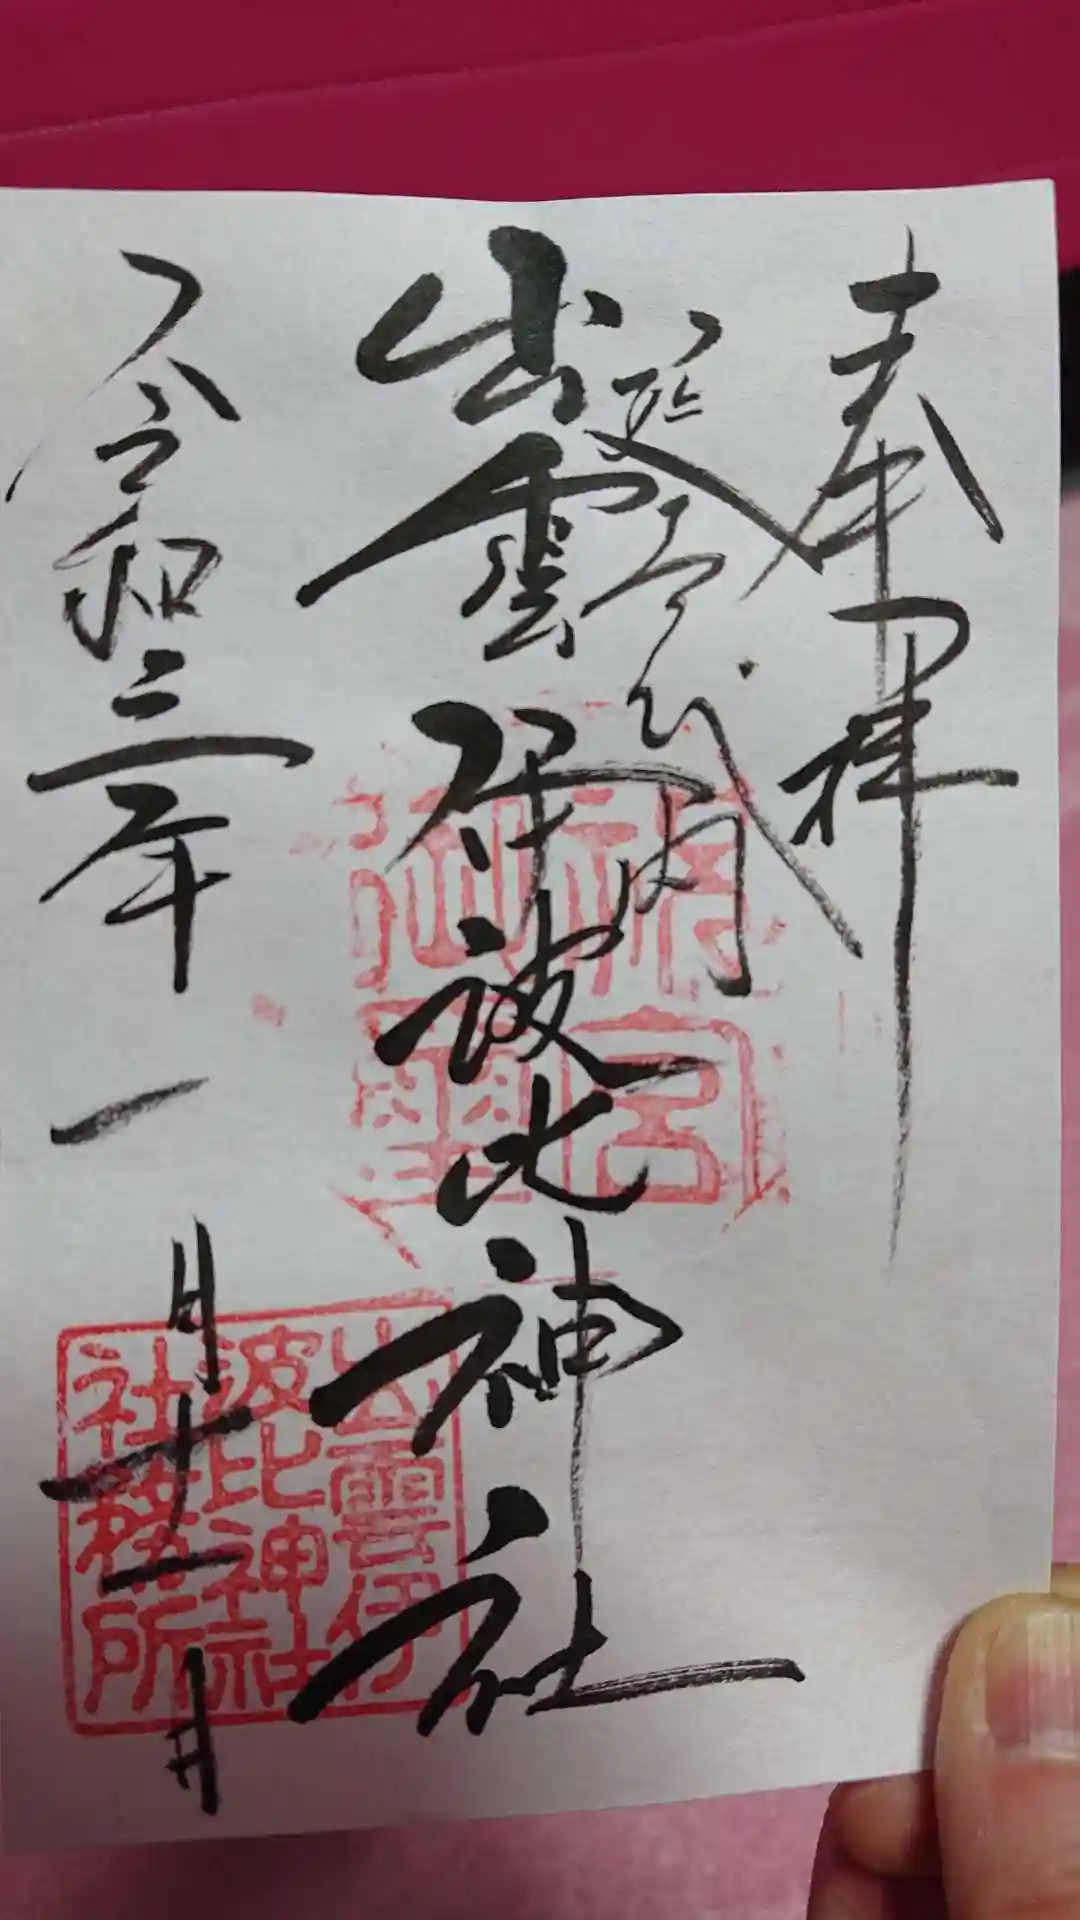 奉拝
延喜式内
出雲伊波比神社
令和三年一月廿二日
出雲伊
波比神社
社務所